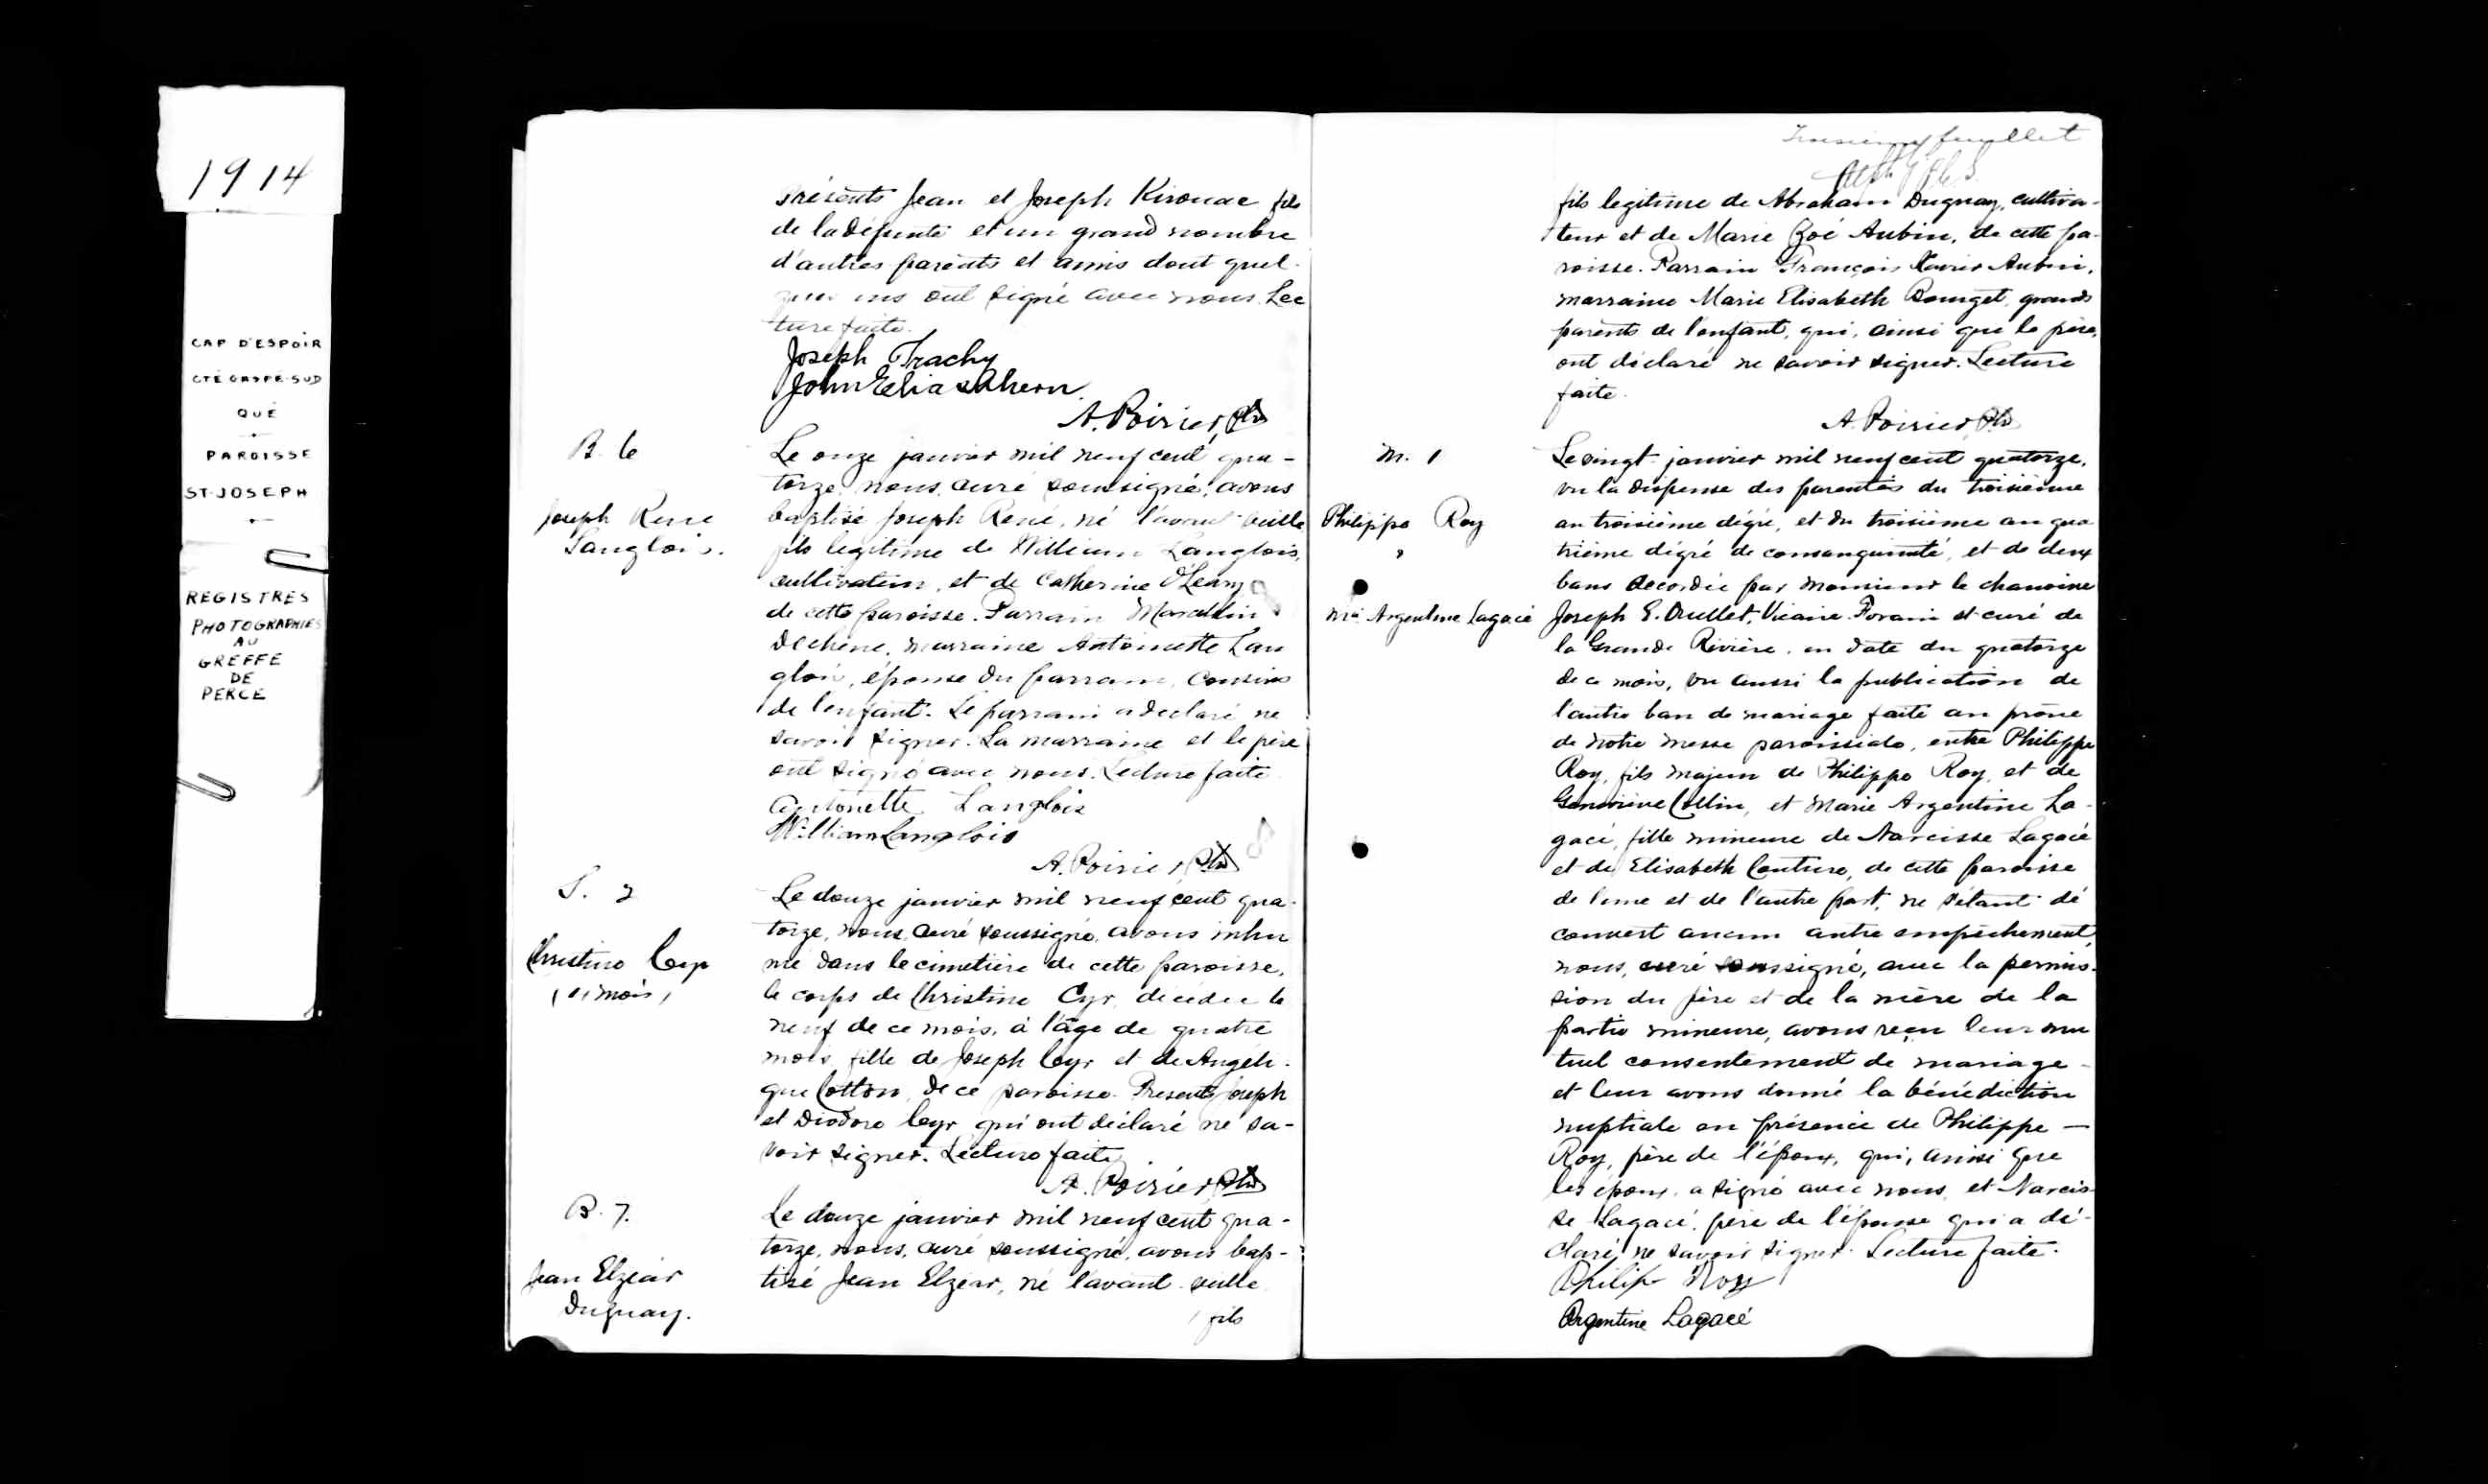 1914
CAP D'ESPOIR
CTÉ GASPÉ-SUD
QUÉ
PAROISSE
ST-JOSEPH
REGISTRES
PHOTOGRAPHIES
AU
GREFFE
DE
PERCE
Présents Jean et Joseph Kirouac fils
de la défunte et un grand nombre
d'autres parents et amis dont quel-
ques uns ont signé avec nous. Lec
ture faite.
Joseph Trachy
John Elias Ahern
A. Poirier, Ptre
B. 6
Joseph René
Langlois.
Le onze janvier mil neuf cent qua-
torze, nous, curé soussigné, avons
baptisé Joseph René, né l'avant-veille
fils légitime de William Langlois,
cultivateur, et de Catherine O'Leary
de cette paroisse. Parrain Marcellin
Dechêne, marraine Antoinette Lan
glois, épouse du parrain, cousins
de l'enfant. Le parrain a déclaré ne
savoir signer. La marraine et le père
ont signé avec nous. Lecture faite
Antonette Langlois
William Langlois
A. Poirier, Ptre
S. 2
Christine Cyr
mois
Le douze janvier mil neuf cent qua-
torze, nous, curé soussigné, avons inhu
mé dans le cimetière de cette paroisse,
le corps de Christine Cyr, décédée le
neuf de ce mois, à l'âge de quatre
mois fille de Joseph Cyr et de Angéli-
que Cotton, de ce paroisse. Présents Joseph
et Diodore Cyr qui ont déclaré ne sa-
voir signer. Lecture faite
A. Poirier Ptre
B. 7.
Jean Elzéar
Duguay.
Le douze janvier mil neuf cent qua-
torze, nous, curé soussigné, avons bap-
tisé Jean Elzéar, né l'avant-veille
fils
Troisième feuillet
fils légitime de Abraham Duguay, cultiva-
teur et de Marie Zoé Aubin, de cette pa-
roisse. Parrain François Xavier Aubin,
marraine Marie Elisabeth Bourget, grands
parents de l'enfant, qui, ainsi que le père,
ont déclaré ne savoir signer. Lecture
faite.
A. Poirier, Ptre
M. 1
Philippe Roy
&
Mie Argentine Lagacé
Le vingt janvier mil neuf cent quatorze,
vu la dispense des parentés du troisième
au troisième dégré, et du troisième au qua
trième dégré de consanguinité, et de deux
bans accordée par Monsieur le chanoine
Joseph E. Ouellet, Vicaire Forain et curé de
la Grande Rivière, en date du quatorze
de ce mois, vu aussi la publication de
l'autre ban de mariage faite au prône
de notre messe paroissiale, entre Philippe
Roy, fils majeur de Philippe Roy, et de
Geneviève Collin, et Marie Argentine La-
gacé, fille mineure de Narcisse Lagacé
et de Elisabeth Couture, de cette paroisse
de l'une et de l'autre part, ne s'étant dé
couvert aucun autre empêchement,
nous, curé soussigné, avec la permis-
sion du père et de la mère de la
partie mineure, avons reçu leur mu
tuel consentement de mariage -
et leur avons donné la bénédiction
nuptiale en présence de Philippe —
Roy, père de l'époux, qui, ainsi que
les époux, a signé avec nous, et Narcis-
se Lagacé, père de l'épouse qui a dé-
claré ne savoir signer. Lecture faite.
Philip Roy
Argentine Lagacé